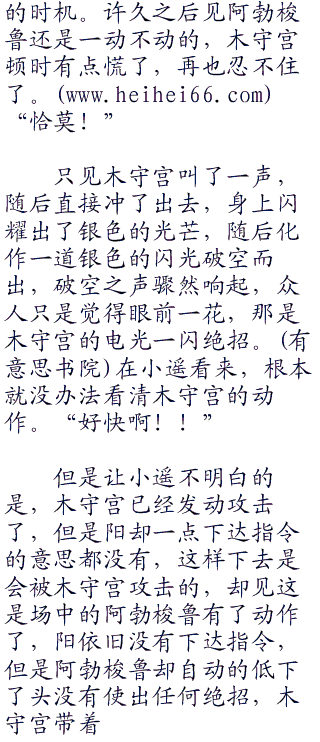 的时机。许久之后见阿勃梭
鲁还是一动不动的，木守宫
顿时有点慌了，再也忍不住
了。(www.heihei66.com)
“恰莫！”
只见木守宫叫了一声，
随后直接冲了出去，身上闪
耀出了银色的光芒，随后化
作一道银色的闪光破空而
出，破空之声骤然响起，众
人只是觉得眼前一花，那是
木守宫的电光一闪绝招。(有
意思书院)在小遥看来，根本
就没办法看清木守宫的动
作。“好快啊！！”
但是让小遥不明白的
是，木守宫已经发动攻击
了，但是阳却一点下达指令
的意思都没有，这样下去是
会被木守宫攻击的，却见这
是场中的阿勃梭鲁有了动作
了，阳依旧没有下达指令，
但是阿勃梭鲁却自动的低下
了头没有使出任何绝招，木
守宫带着